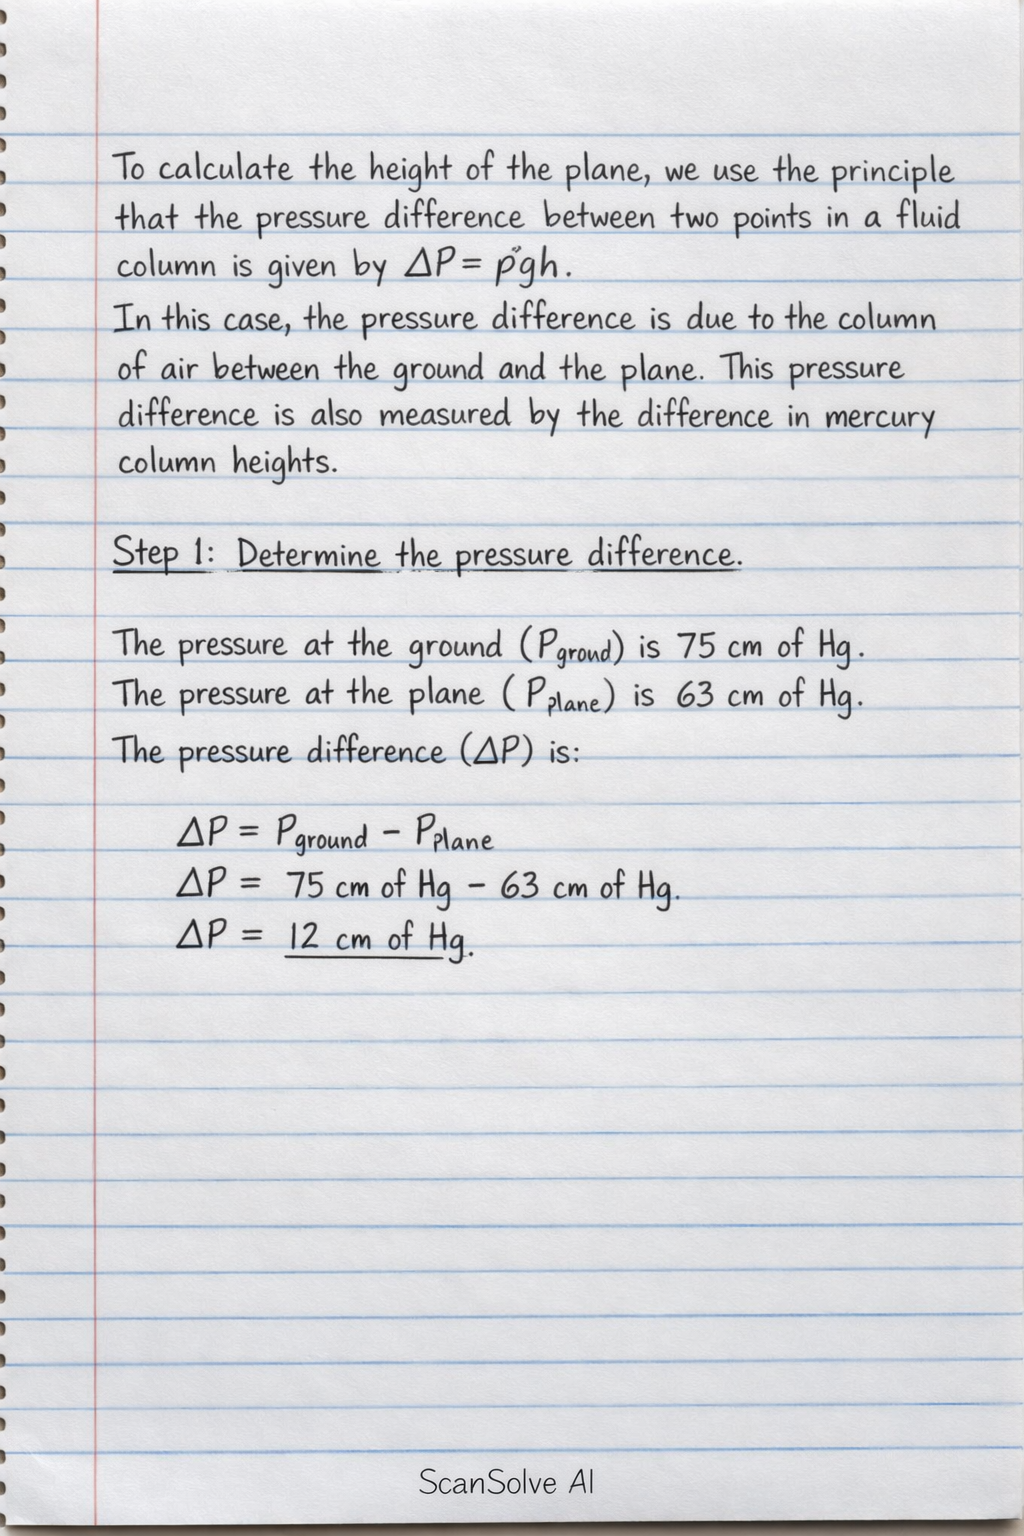 To calculate the height of the plane, we use the principle
that the pressure difference between two points in a fluid
column is given by ΔP = ρgh.
In this case, the pressure difference is due to the column
of air between the ground and the plane. This pressure
difference is also measured by the difference in mercury
column heights.
Step 1: Determine the pressure difference.
The pressure at the ground (Pgroud) is 75 cm of Hg.
The pressure at the plane (Pplane) is 63 cm of Hg.
The pressure difference (ΔP) is:
ΔP = Pground − Pplane
ΔP = 75 cm of Hg − 63 cm of Hg.
ΔP = 12 cm of Hg.
ScanSolve AI